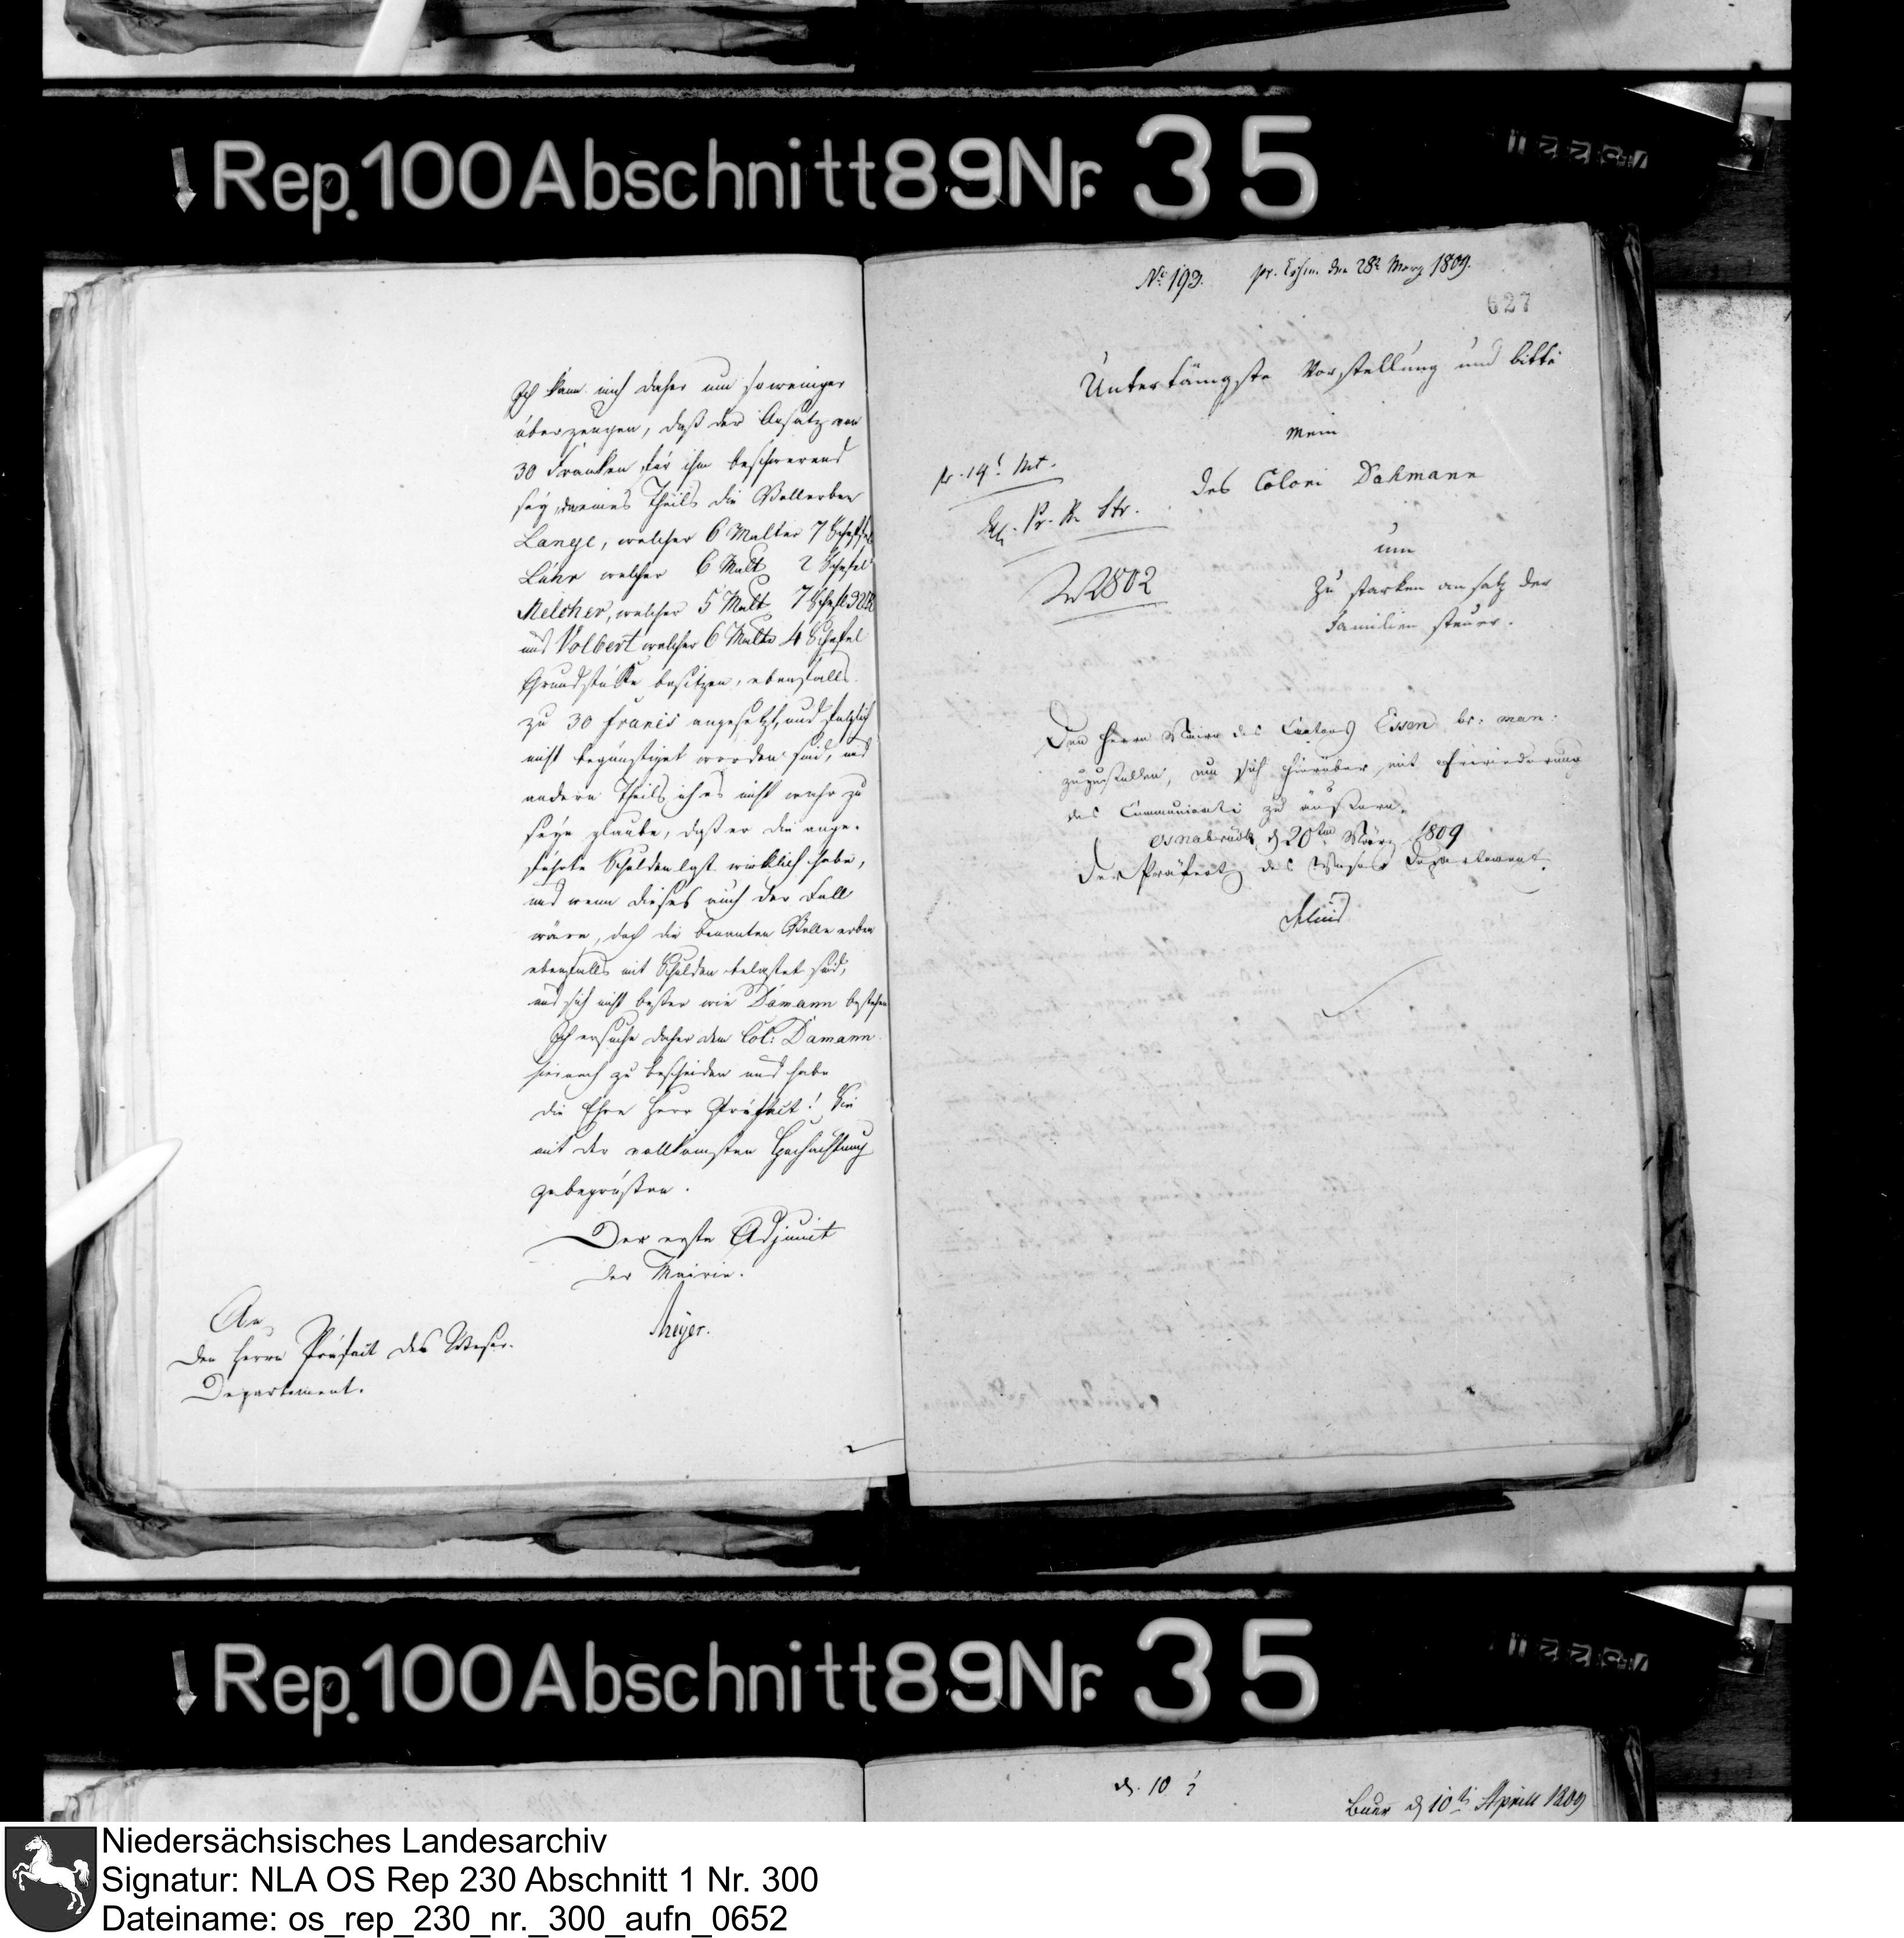 Rep. 100 Abschnitt 89 Nr. 35
Ich kann mich daher um so weniger
überzeugen, daß der Ansatz von
30 Franken für ihn beschwerend
sey, da eines Theils die Vollerben
Lange, welcher 6 Malter 7 Scheffel
Lühr welcher 6 Malt 2 Schefel
Melcher, welcher 5 Malt 7 Schefl
und Volbert welcher 6 Malter 4 Schefel
Grundstücke besitzen, ebenfalls
zu 30 francs angesetzt, und folglich
nicht begünstiget worden sind, und
andern Theils ich es nicht wahr zu
seyn glaube, daß er die ange-
führte Schuldenlast wirklich habe,
und wenn dieses auch der Fall
wäre, doch die benanten Vollerben
ebenfalls mit Schulden belastet sind,
und sich nicht besser wie Damann bestehen
Ich ersuche daher den Col: Damann
hiernach zu bescheiden und habe
die Ehre Herr Präfect! Sie
mit der vollkomsten Hochachtung
zu begrüßen.
Der erste Adjunct
der Mairie.
Meyer.
An
den Herrn Präfect des Weser-
Departement.
No 193. pr. den 28t März 1809.
627
Untertänigste Vorstellung und bitte
mein
des Coloni Dahmann
um
zu starken ansatz der
Familien steuer.
2802
Dem Herrn Maire des Cantons Essen br: man:
zuzustellen, um sich hierüber mit
des Communicati zu äußern.
Osnabrück d 20ten März 1809
Der Präfect des Weser Departement.
d. 10
Buer d 10t Aprill 1809
Rep. 100 Abschnitt 89 Nr. 35
Niedersächsisches Landesarchiv
Signatur: NLA OS Rep 230 Abschnitt 1 Nr. 300
Dateiname: os_rep_230_nr._300_aufn_0652